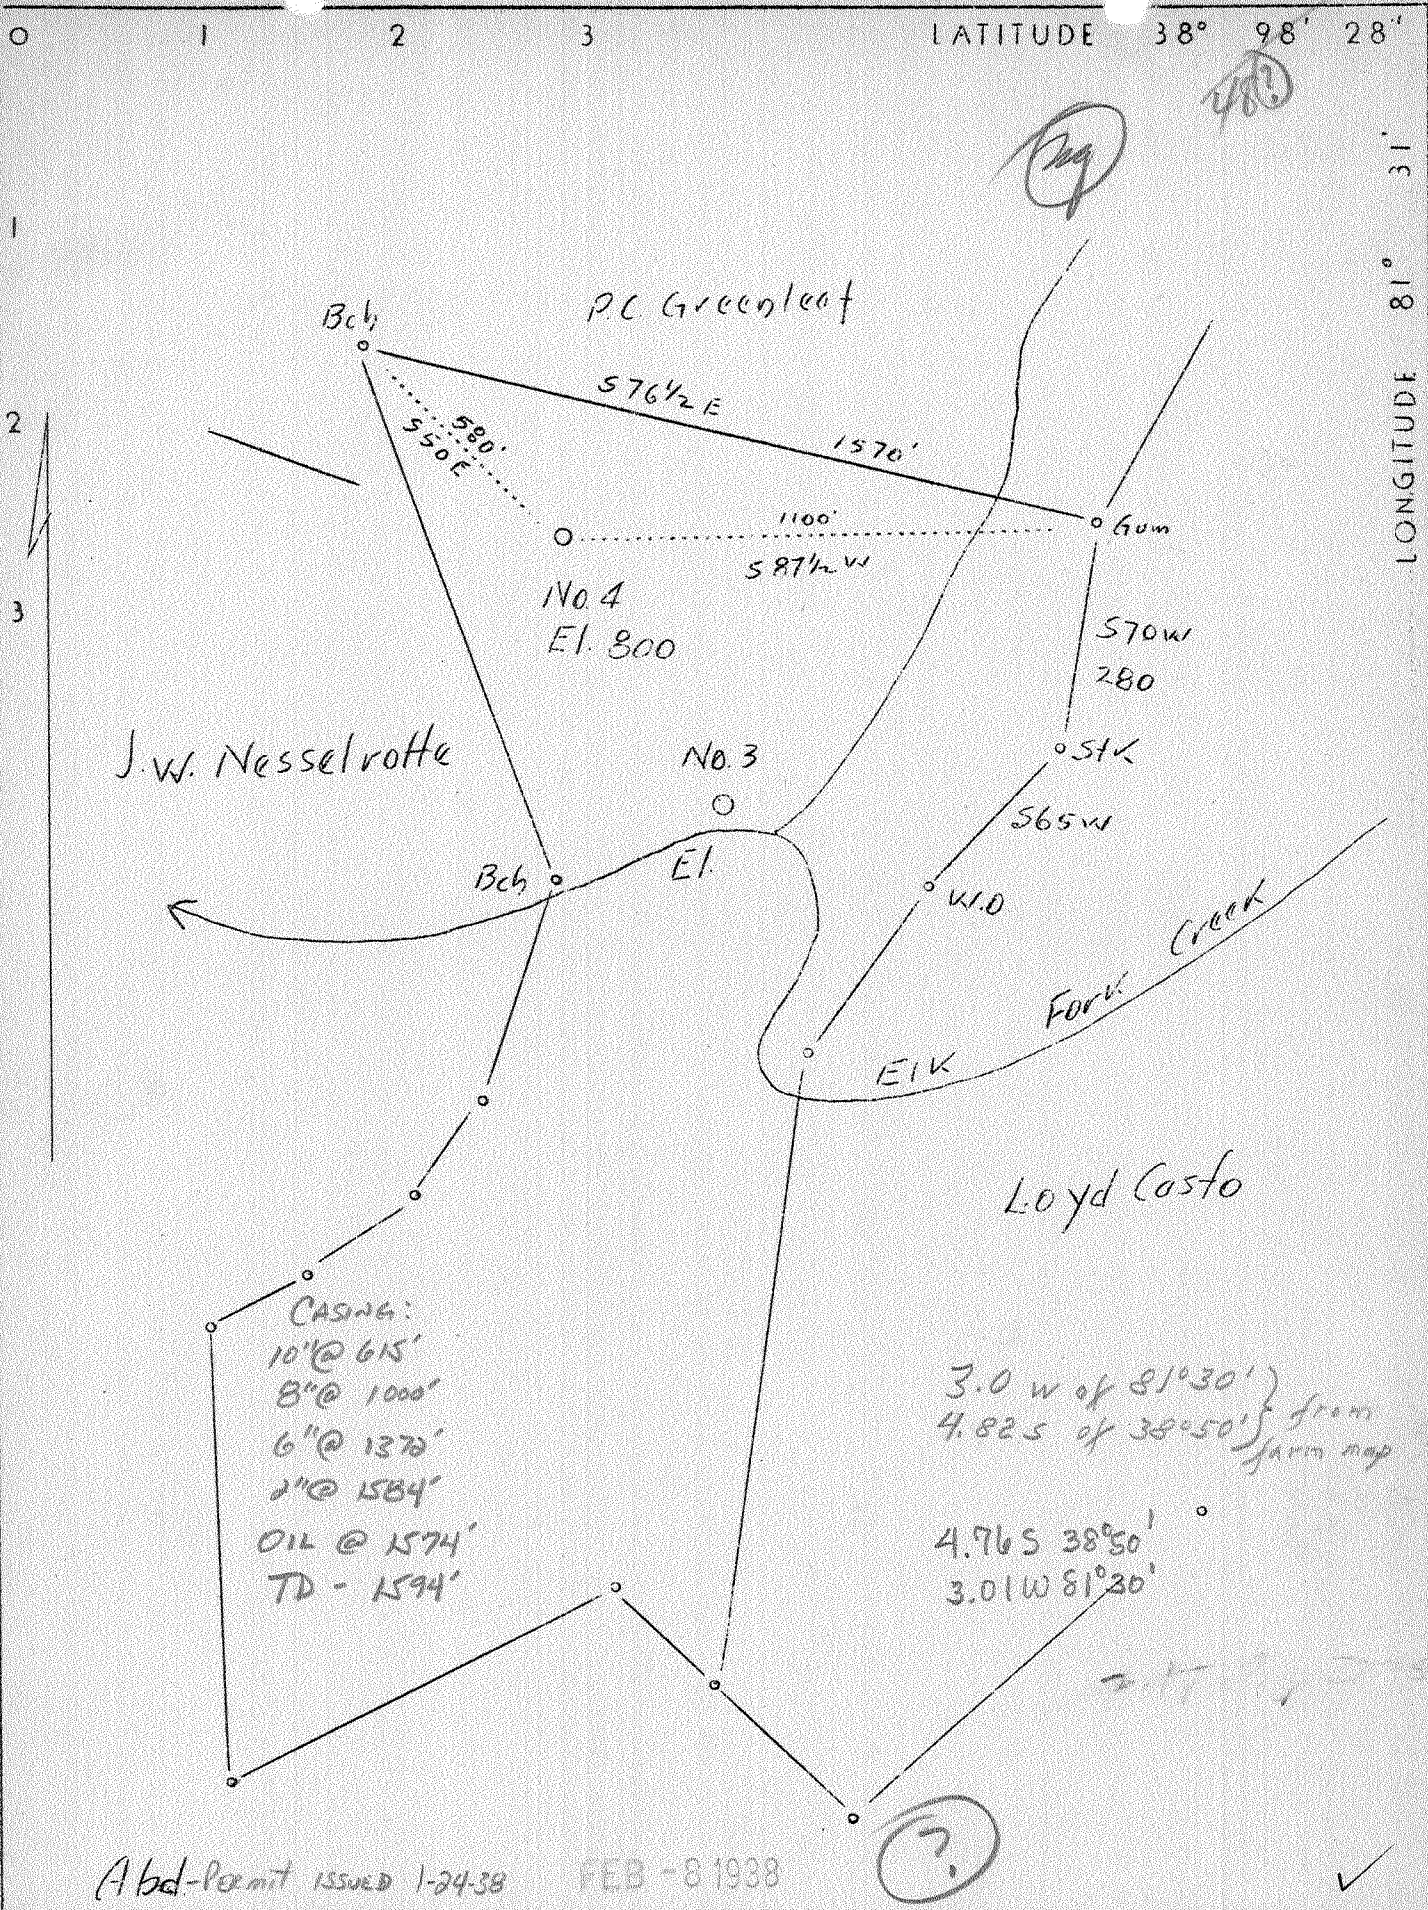 0 1 2 3 LATITUDE 38° 98' 28"
48?
LONGITUDE 81° 31'
1
2
3
P.C. Greenleaf
Bch
S 76 1/2 E
1570'
580'
S50E
1100'
S 87 1/2 W
Gum
No. 4
El. 800
S70W
280
J.W. Nesselrotte
No. 3
Stk
S65W
El.
Bch
W.O
Elk Fork Creek
Loyd Casto
CASING:
10"@ 615'
8"@ 1000'
6"@ 1372'
2"@ 1584'
OIL @ 1574'
TD - 1594'
3.0 W of 81°30' } from
4.82 S of 38°50' } farm map
4.76 S 38°50'
3.01 W 81°30'
?
Abd-Permit ISSUED 1-24-38 FEB -8 1938